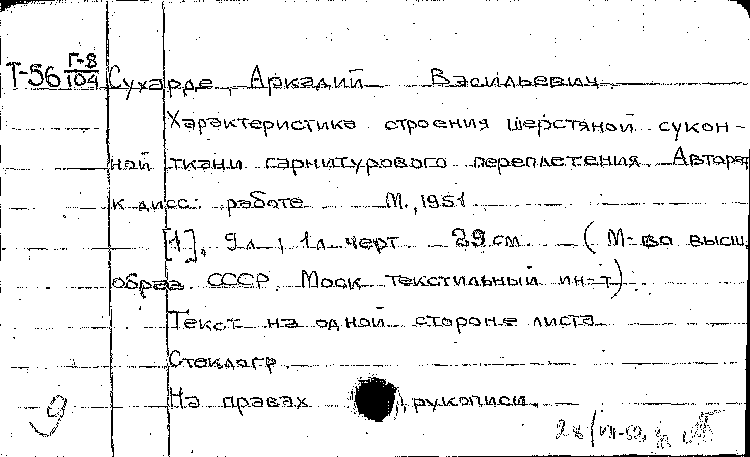 Т-56 Г-8/104 Сухарде, Аркадий Васильевич.
Характеристика строения шерстяной сукон-
ной ткани гарнитурового переплетения. Автореф.
к дисс. работе М., 1951.
[1], 9 л., 1 л. черт. 29 см. (М-во высш.
образ. СССР. Моск. текстильный ин-т).
Текст на одной стороне листа
Стеклогр.
На правах рукописи.
9